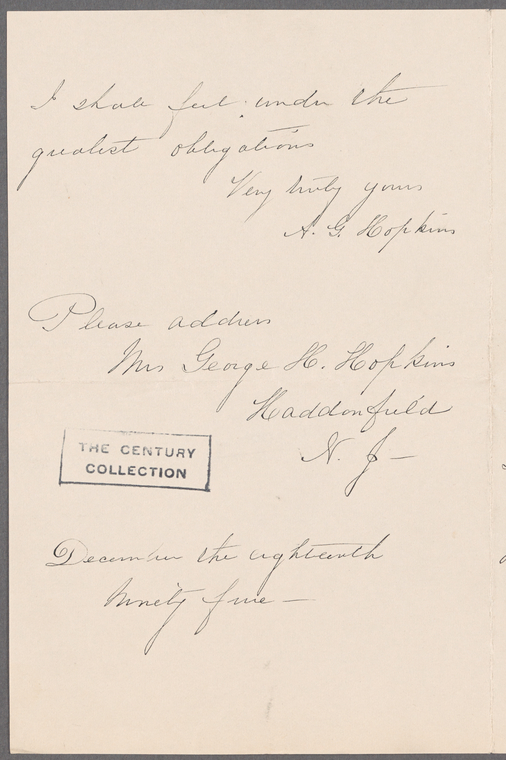 I shall feel under the
greatest obligations
Very truly yours
A. G. Hopkins
Please address
Mrs George H. Hopkins
Haddonfield
N. J —
THE CENTURY
COLLECTION
December the eighteenth
Ninety five —